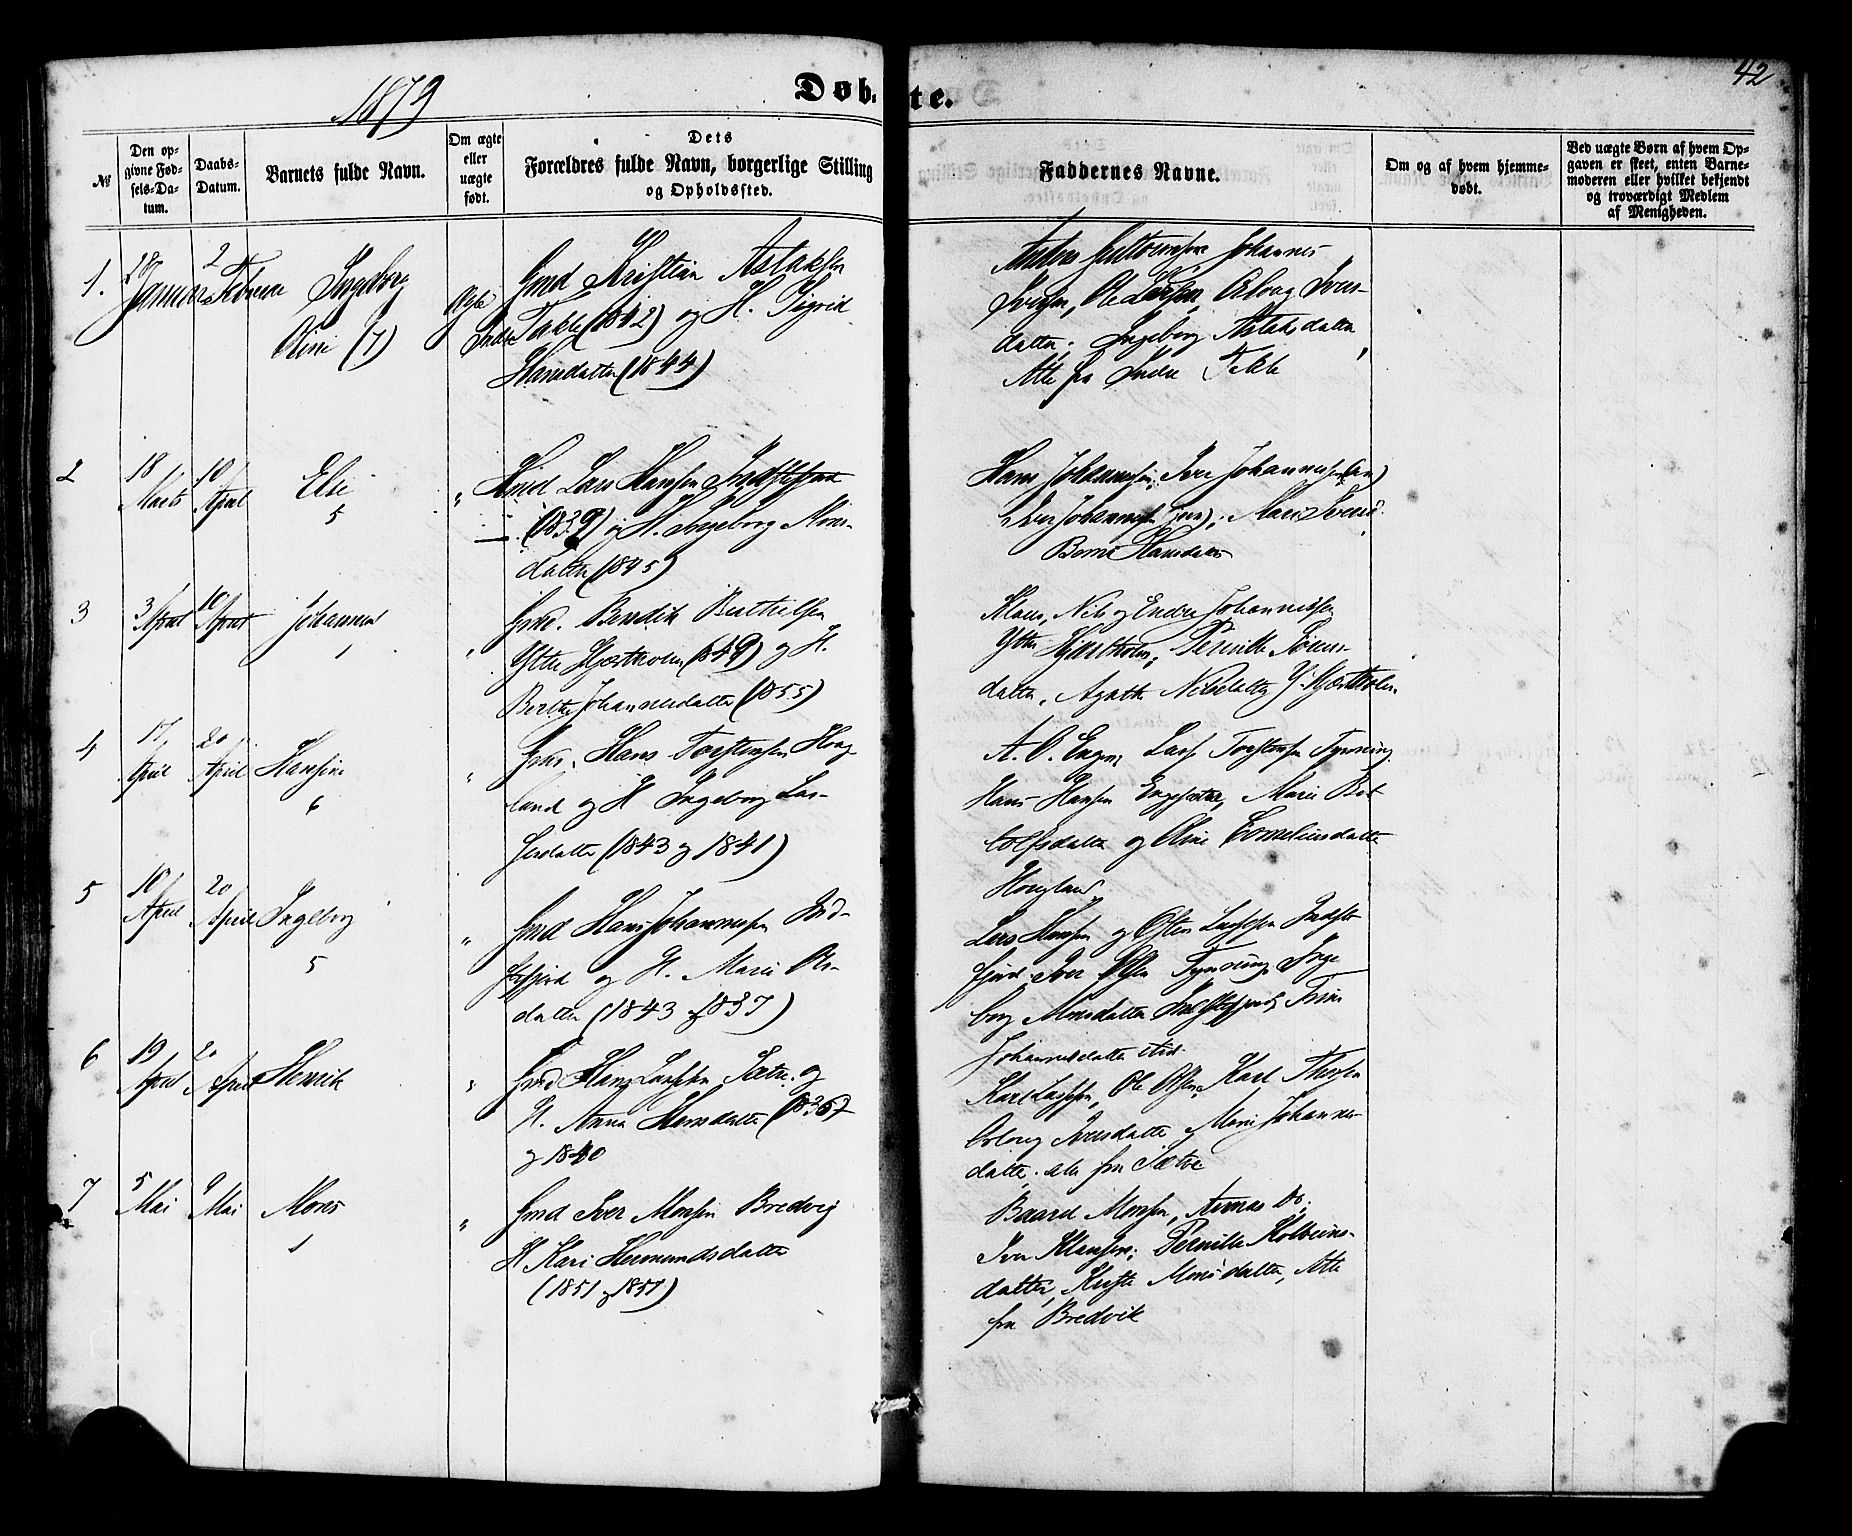 1879
Døb-
te.
42
№
Den op-
givne Fød-
sels-Da-
tum.
Daabs-
Datum.
Barnets fulde Navn.
Om ægte
eller
uægte
født.
Dets
Forældres fulde Navn, borgerlige Stilling
og Opholdssted.
Faddernes Navne.
Om og af hvem hjemme-
døbt.
Ved uægte Børn af hvem Op-
gaven er skeet, enten Barne-
moderen eller hvilket bekjendt
og troværdigt Medlem
af Menigheden.
1.
Januar
2
Ingeborg
Oline (7)
Ægte
Gmd Kristian Aslaksen
Indre Takle (1842) og H. Sigrid
Hansdatter (1844)
Johannes
Iversen, Ole Larsen, Oloug Ivers-
datter, Ingeborg Aslaksdatter
Alle fra Indre Takle
2
18
Marts
10
April
Elsi
5
"
Lars Hansen
(1839) og H. Ingeborg Mons-
datter (1845)
Hans Johannessen, Iver Johannessen (sen)
Iver Johannessen (jun),
Hansdatter
3
3
April
10
April
Johannes
1
"
Gmd. Bendik Berthelsen
Ytre Hjertholm (1849) og H.
Berthe Johannesdatter (1855)
Klaus, Nils og Endre Johannessen
Ytre Hjertholm, Pernille
datter, Agathe Nilsdatter Y. Hjertholm
4
17
April
20
April
Hansine
6
"
Hans Torstensen Houg-
land og H Ingeborg Las-
sesdatter (1843 og 1841)
A. O. Engen, Lasse Torstensen Tynning,
Hans Hansen Engesæter, Marie Bot-
tolfsdatter og Oline Corneliusdatter
Hougland
5
16
April
20
April
Ingeborg
5
"
Gmd Hans Johannessen Ind-
stefjord og H. Marie Ols-
datter (1843 og 1837)
Lars Hansen og Osten Lassesen Indste-
fjord, Iver Olsen Tynning, Inge-
borg Monsdatter Indstefjord, Trine
Johannesdatter ibid.
6
19
April
20
April
Henrik
"
Gmd Hans Lassesen Sætre og
H. Anna Hansdatter (1836
og 1840
Karl Lassesen, Ole Olsen, Karl
Iversdatter, Mari Johannes-
datter. alle fra Sætre
7
5
Mai
9
Mai
Mons
1
"
Gmd Iver Monsen Bredvig
H Kari Hermundsdatter
(1851 og 1851)
Baard Monsen, Do;
Iver Klausen; Pernille Kolbeins-
datter, Monsdatter, Alle
fra Bredvik